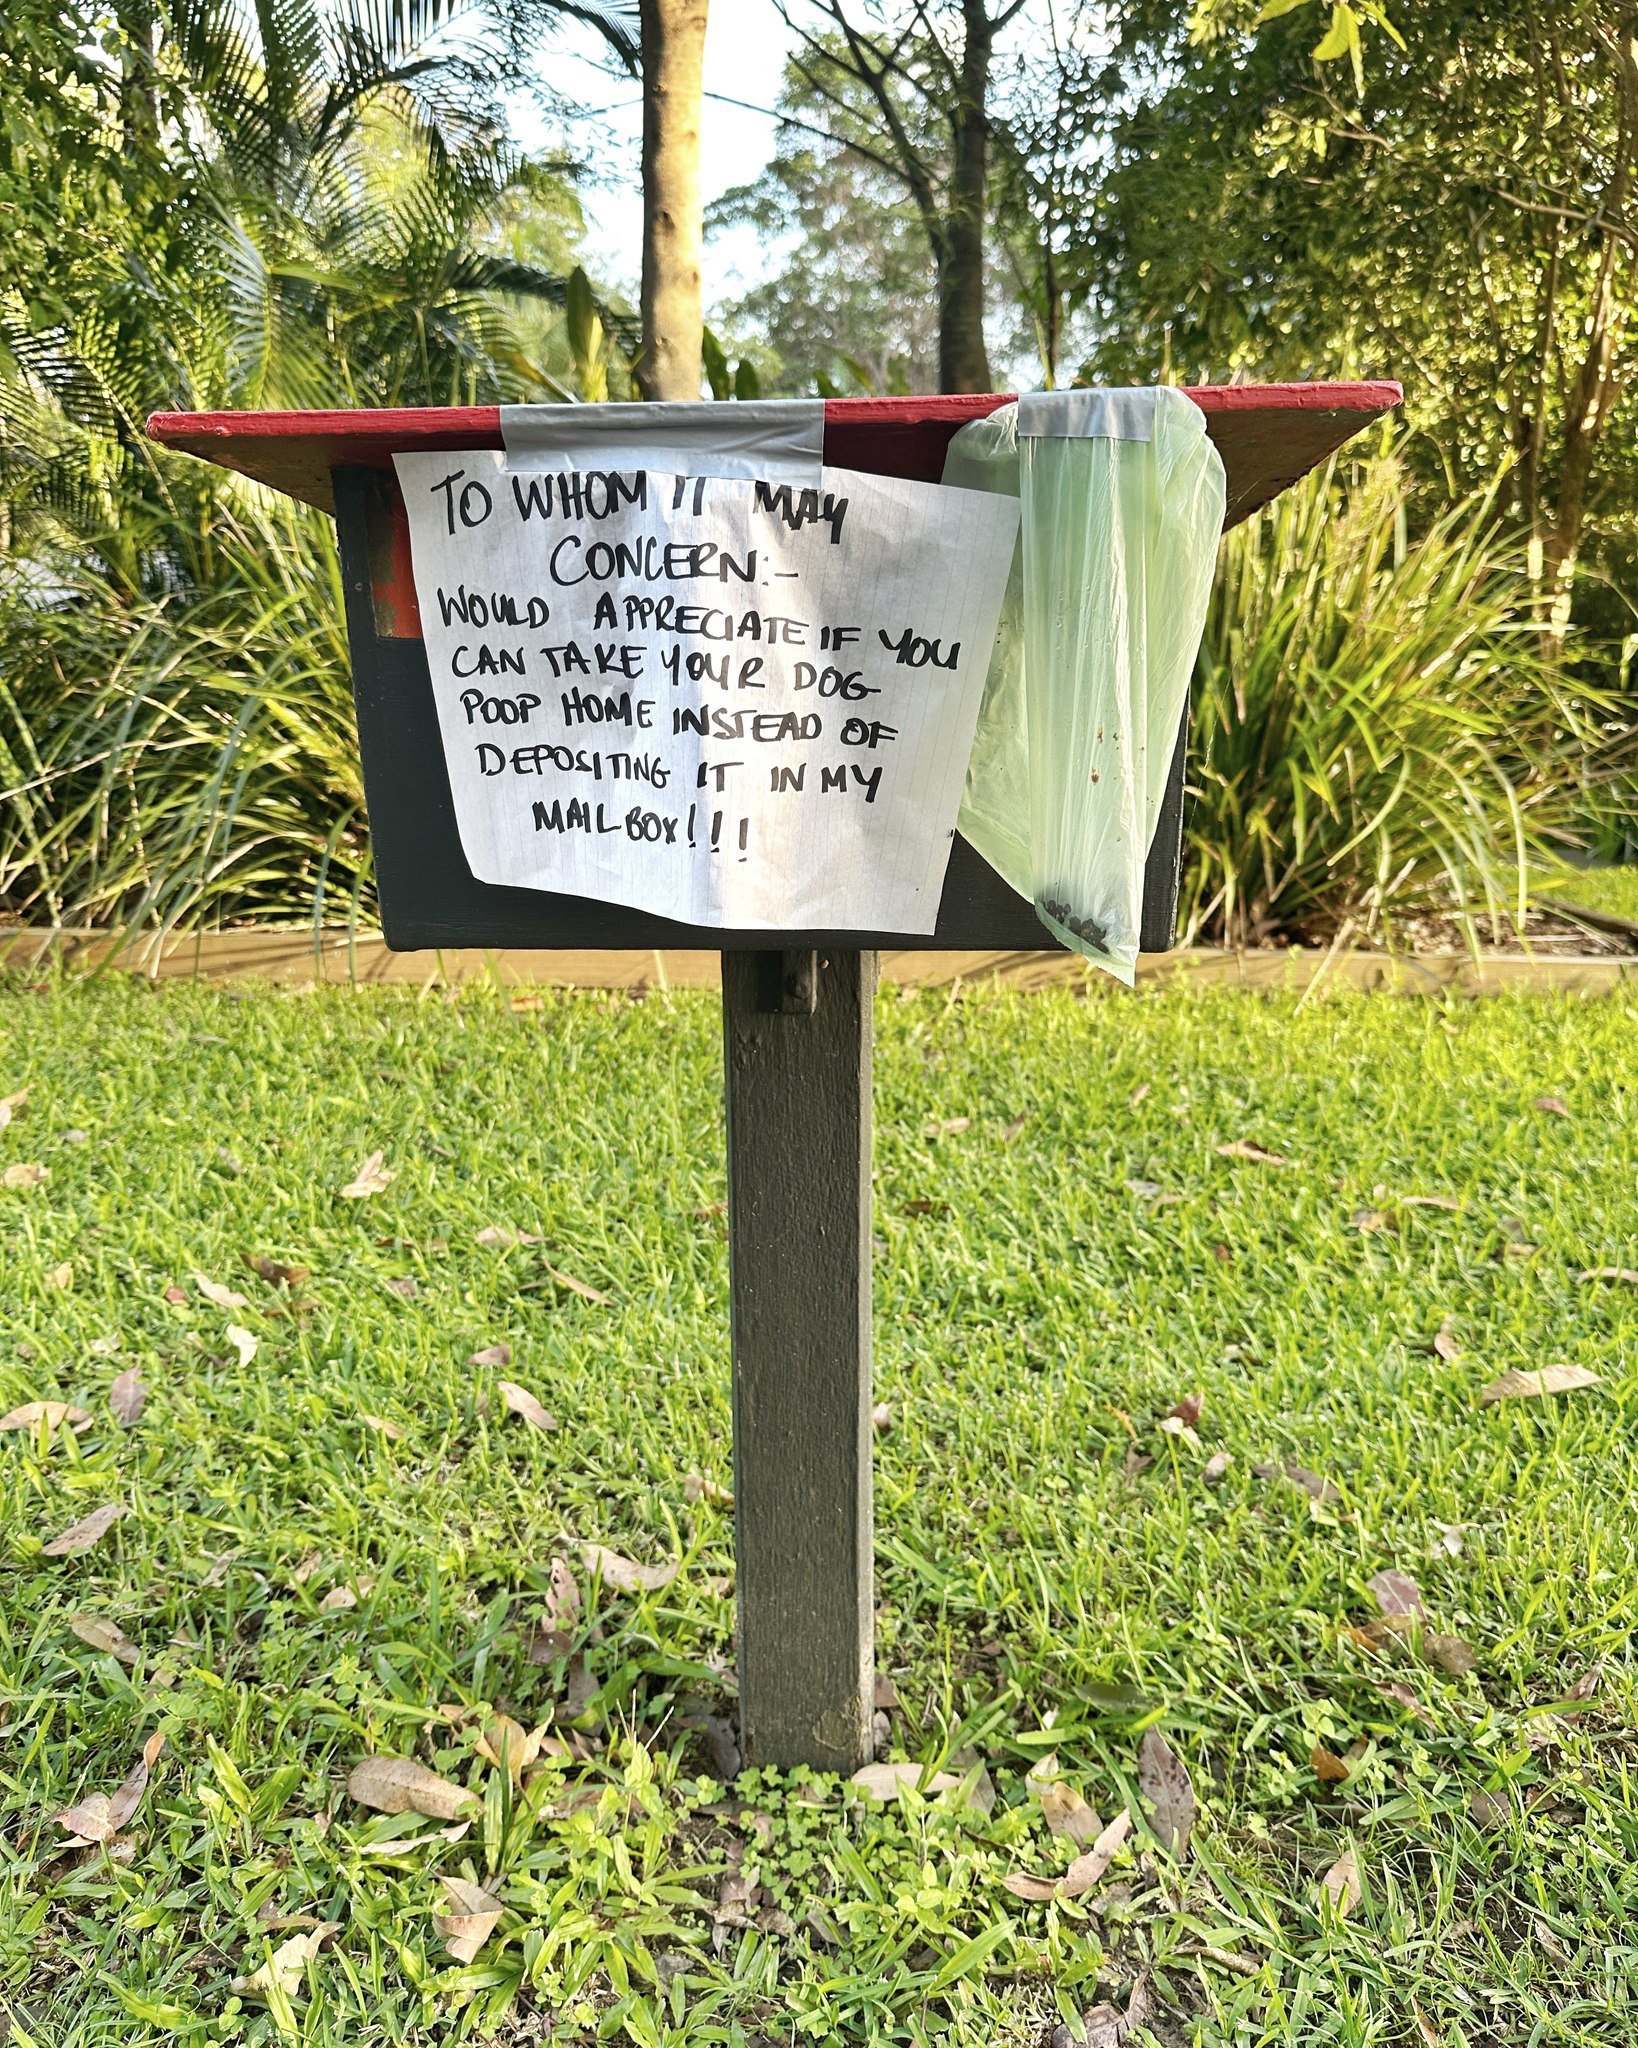 TO WHOM IT MAY
CONCERN:-
WOULD APPRECIATE IF YOU
CAN TAKE YOUR DOG
POOP HOME INSTEAD OF
DEPOSITING IT IN MY
MAILBOX!!!